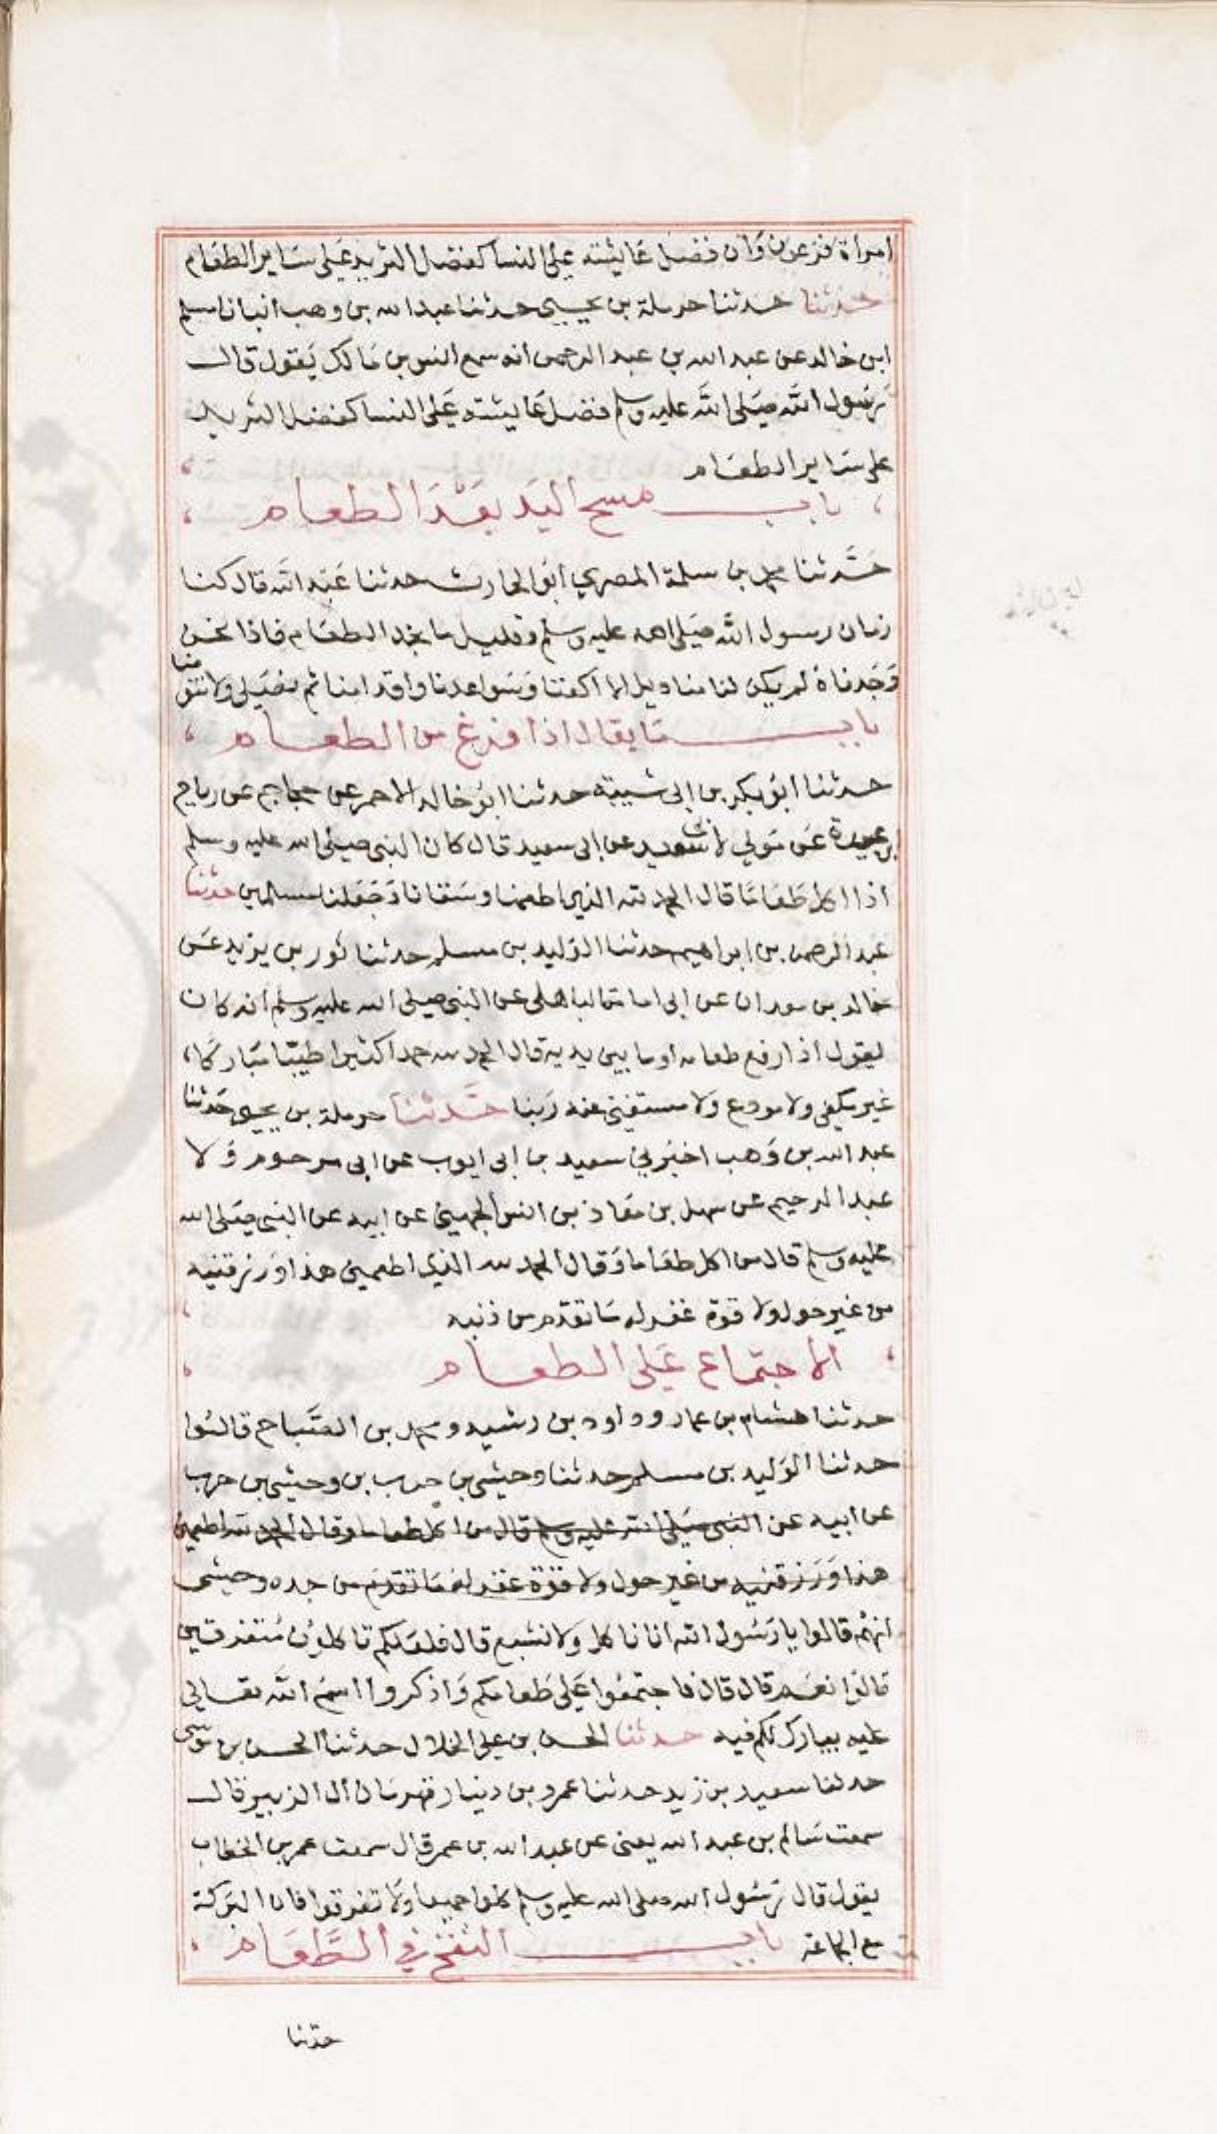 امراة فرعون وان فضل عايشة على النسا كفضل الثريد على ساير الطعام
حدثنا حدثنا حرملة بن يحيى حدثنا عبد الله بن وهب انبانا مسلم
ابن خالد عن عبد الله بن عبد الرحمن انه سمع انس بن مالك يقول قال
رسول الله صلى الله عليه وسلم فضل عايشة على النسا كفضل الثريد
على ساير الطعام
باب مسح اليد بعد الطعام
حدثنا محمد بن سلمة المصري ابو الحارث حدثنا عبد الله قال كنا
زمان رسول الله صلى الله عليه وسلم وقليل ما نجد الطعام فاذا نحن
وجدناه لم يكن لنا مناديل الا اكفنا وسواعدنا واقدامنا ثم نصلي ولا نتوضا
باب ما يقال اذا فرغ من الطعام
حدثنا ابو بكر بن ابي شيبة حدثنا ابو خالد الاحمر عن حجاج عن رياح
بن عبيدة عن مولي لابي سعيد عن ابي سعيد قال كان النبي صلى الله عليه وسلم
اذا اكل طعاما قال الحمد لله الذي اطعمنا وسقانا وجعلنا مسلمين حدثنا
عبد الرحمن بن ابراهيم حدثنا الوليد بن مسلم حدثنا ثور بن يزيد عن
خالد بن معدان عن ابي امامة الباهلي عن النبي صلى الله عليه وسلم انه كان
يقول اذا رفع طعامه او ما بين يديه قال الحمد لله حمدا كثيرا طيبا مباركا
غير مكفي ولا مودع ولا مستغنى عنه ربنا حدثنا حرملة بن يحيى حدثنا
عبد الله بن وهب اخبرني سعيد بن ابي ايوب عن ابي مرحوم ولا
عبد الرحيم عن سهل بن معاذ بن انس الجهني عن ابيه عن النبي صلى الله
عليه وسلم قال من اكل طعاما وقال الحمد لله الذي اطعمني هذا ورزقنيه
من غير حول ولا قوة غفر له ما تقدم من ذنبه
الاجتماع على الطعام
حدثنا هشام بن عمار وداود بن رشيد ومحمد بن الصباح قالوا
حدثنا الوليد بن مسلم حدثنا وحشي بن حرب بن وحشي بن حرب
عن ابيه عن النبي صلى الله عليه وسلم قال من اكل طعاما وقال الحمد لله اطعمني
هذا ورزقنيه من غير حول ولا قوة غفر له ما تقدم من جده وحشي
انهم قالوا يا رسول الله انا ناكل ولا نشبع قال فلعلكم تاكلون متفرقين
قالوا نعم قال قال فاجتمعوا على طعامكم واذكروا اسم الله تعالى
عليه يبارك لكم فيه حدثنا الحسن بن علي الخلال حدثنا الحسن بن موسى
حدثنا سعيد بن زيد حدثنا عمرو بن دينار قهرمان ال الزبير قال
سمعت سالم بن عبد الله يعنى عن عبد الله بن عمر قال سمعت عمر بن الخطاب
يقول قال رسول الله صلى الله عليه وسلم كلوا جميعا ولا تفرقوا فان البركة
مع الجماعة باب النفخ في الطعام
حدثنا